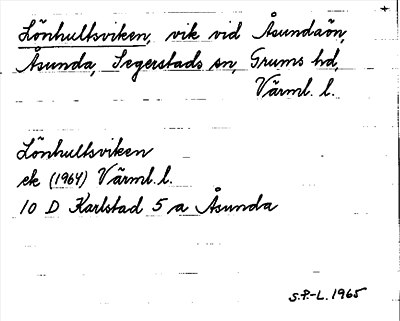 Lönhultsviken, vik vid Åsundaön,
Åsunda, Segerstads sn, Grums hd,
Värml. l.
Lönhultsviken
ek (1964) Värml. l.
10 D Karlstad 5 a Åsunda
S.P.-L. 1965